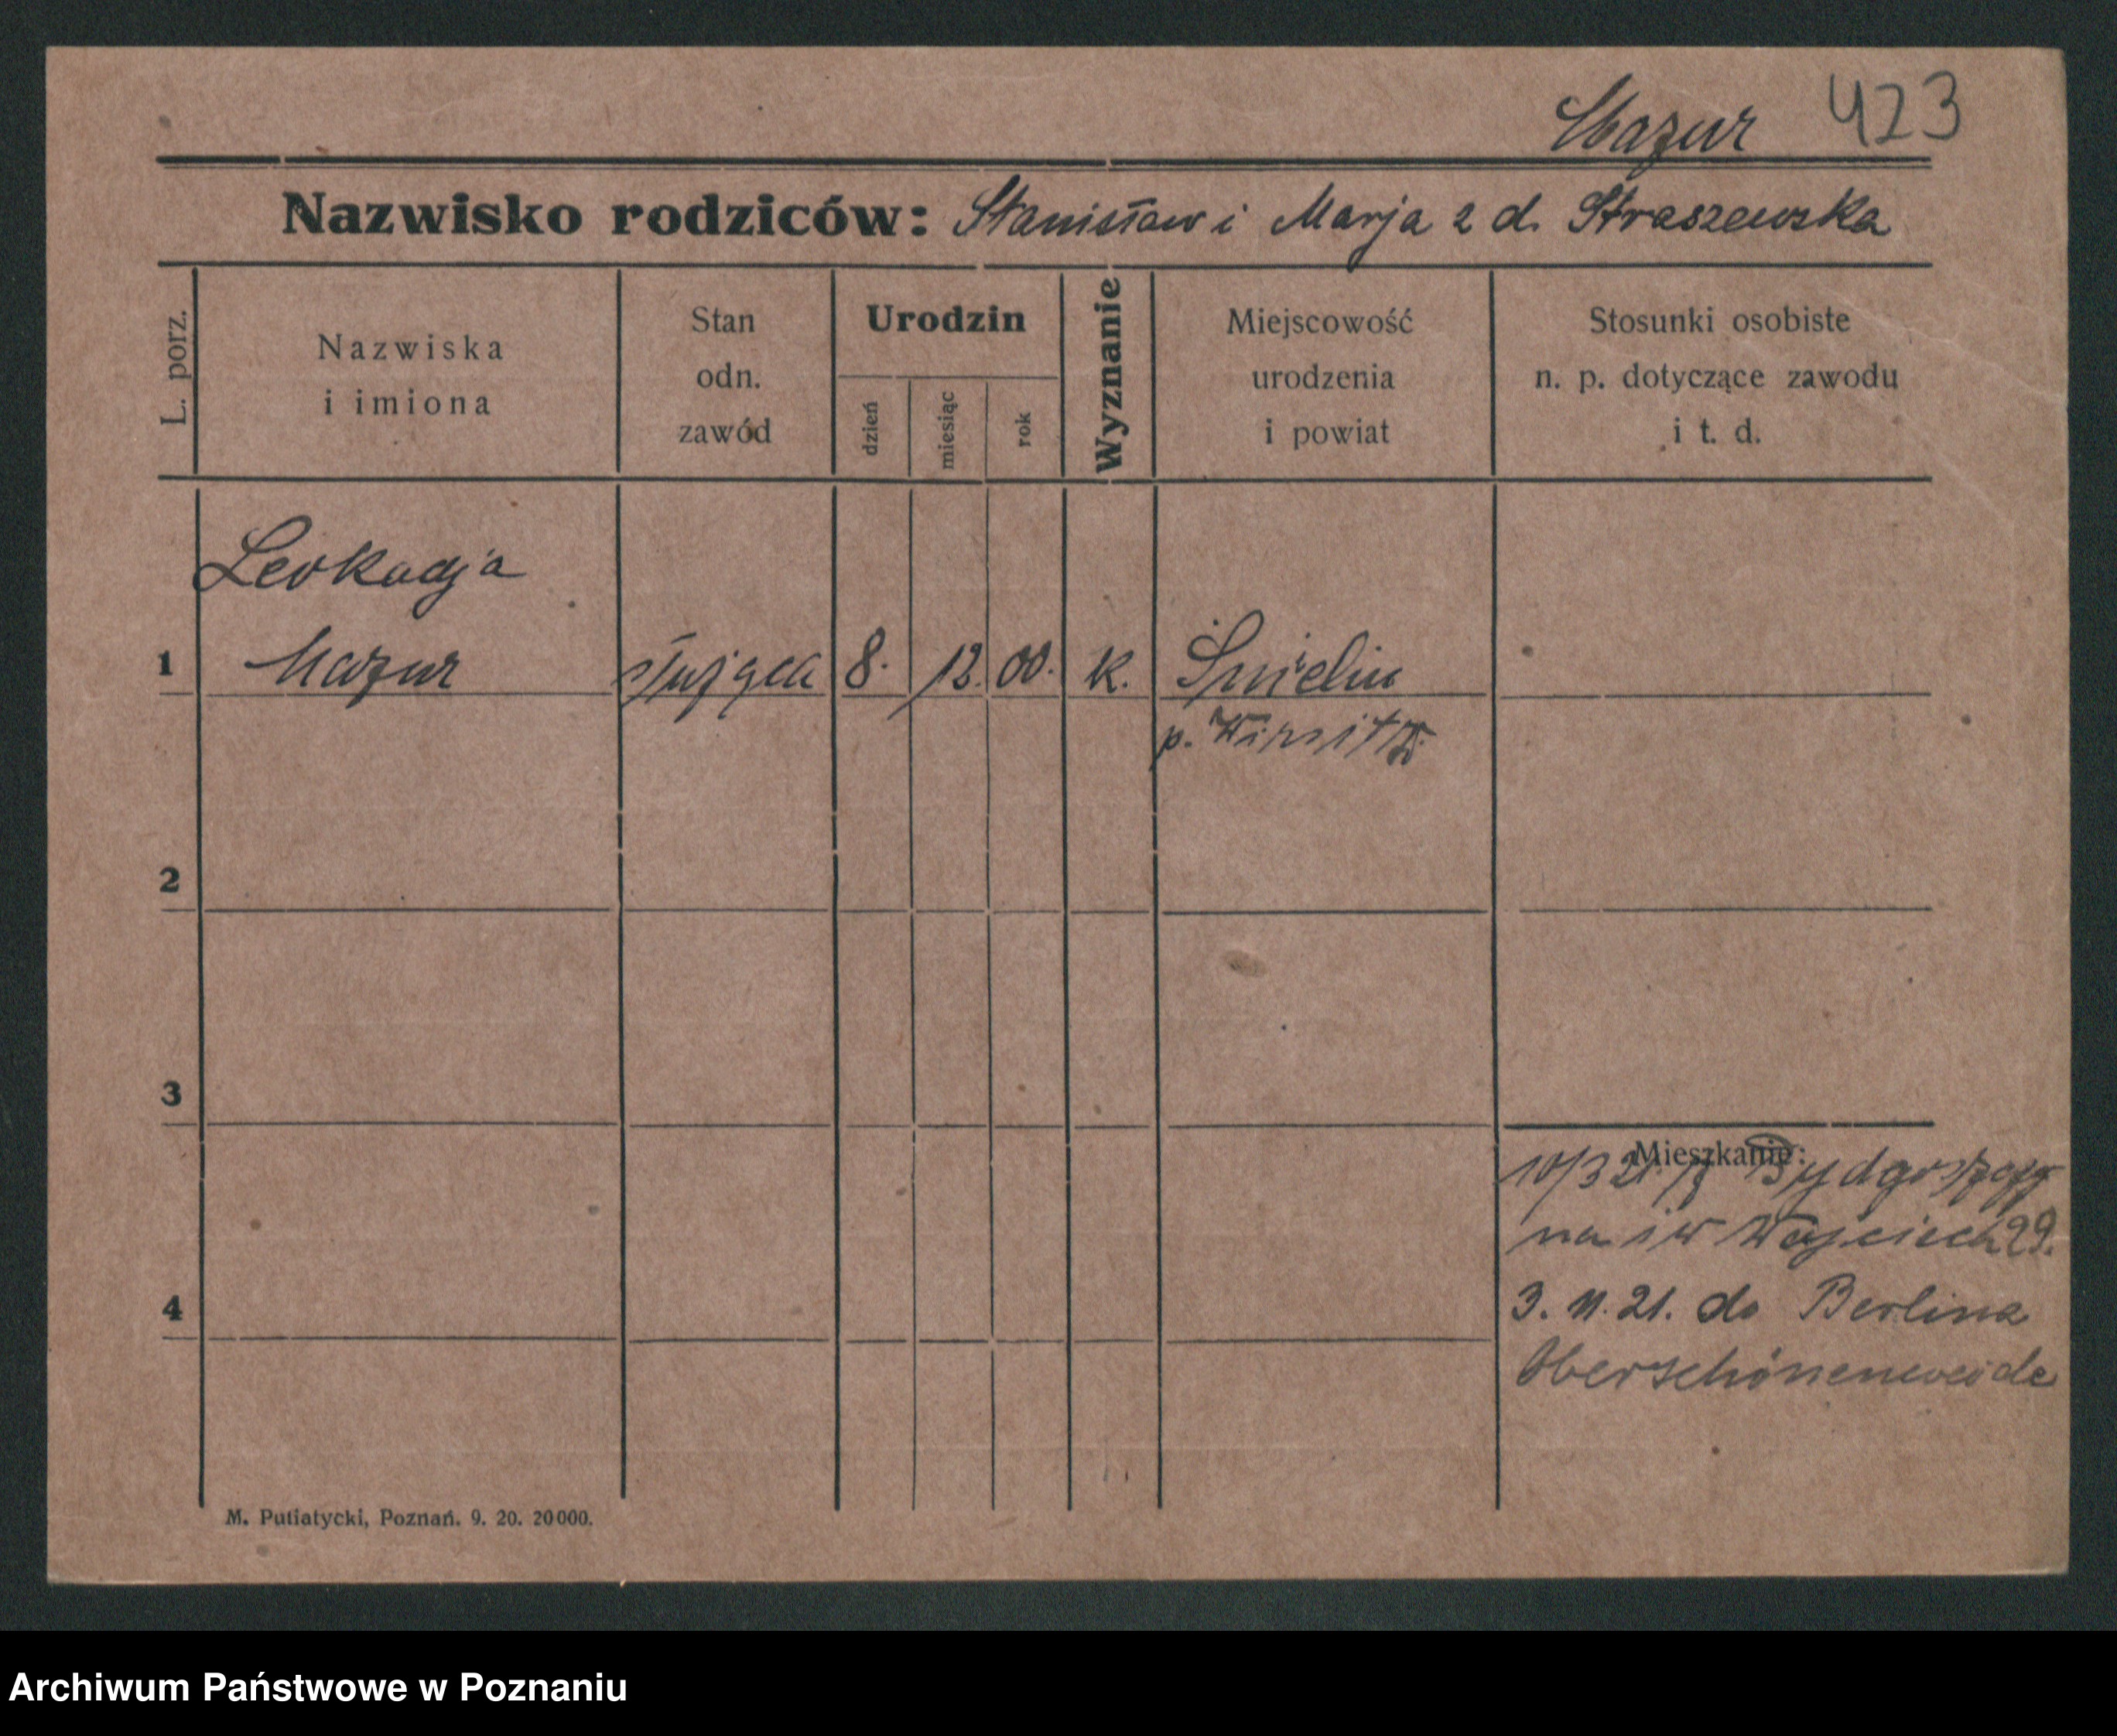 Mazur 423
Nazwisko rodziców: Stanisław i Marja z d. Straszewska
L. porz.
Nazwiska
i imiona
Stan
odn.
zawód
Urodzin
dzień
miesiąc
rok
Wyznanie
Miejscowość
urodzenia
i powiat
Stosunki osobiste
n. p. dotyczące zawodu
i t. d.
Leokadja
1 Mazur służąca 8. 12. 00. k. Śmielin
p. Wirsitz
2
3
Mieszkanie:
10/3 21 z Bydgoszczy
na św Wojciech 29.
4
3. 11. 21. do Berlina
Oberschöneweide
M. Putiatycki, Poznań. 9. 20. 20000.
Archiwum Państwowe w Poznaniu